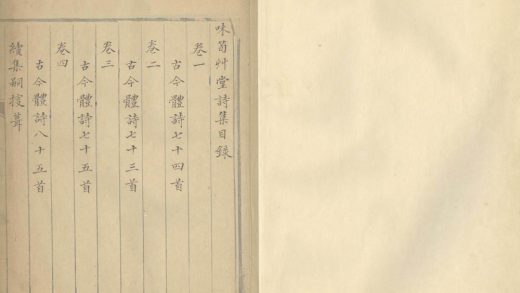 味荀艸堂詩集目錄
卷一
古今體詩七十四首
卷二
古今體詩七十三首
卷三
古今體詩七十五首
卷四
古今體詩八十五首
續集嗣後葺